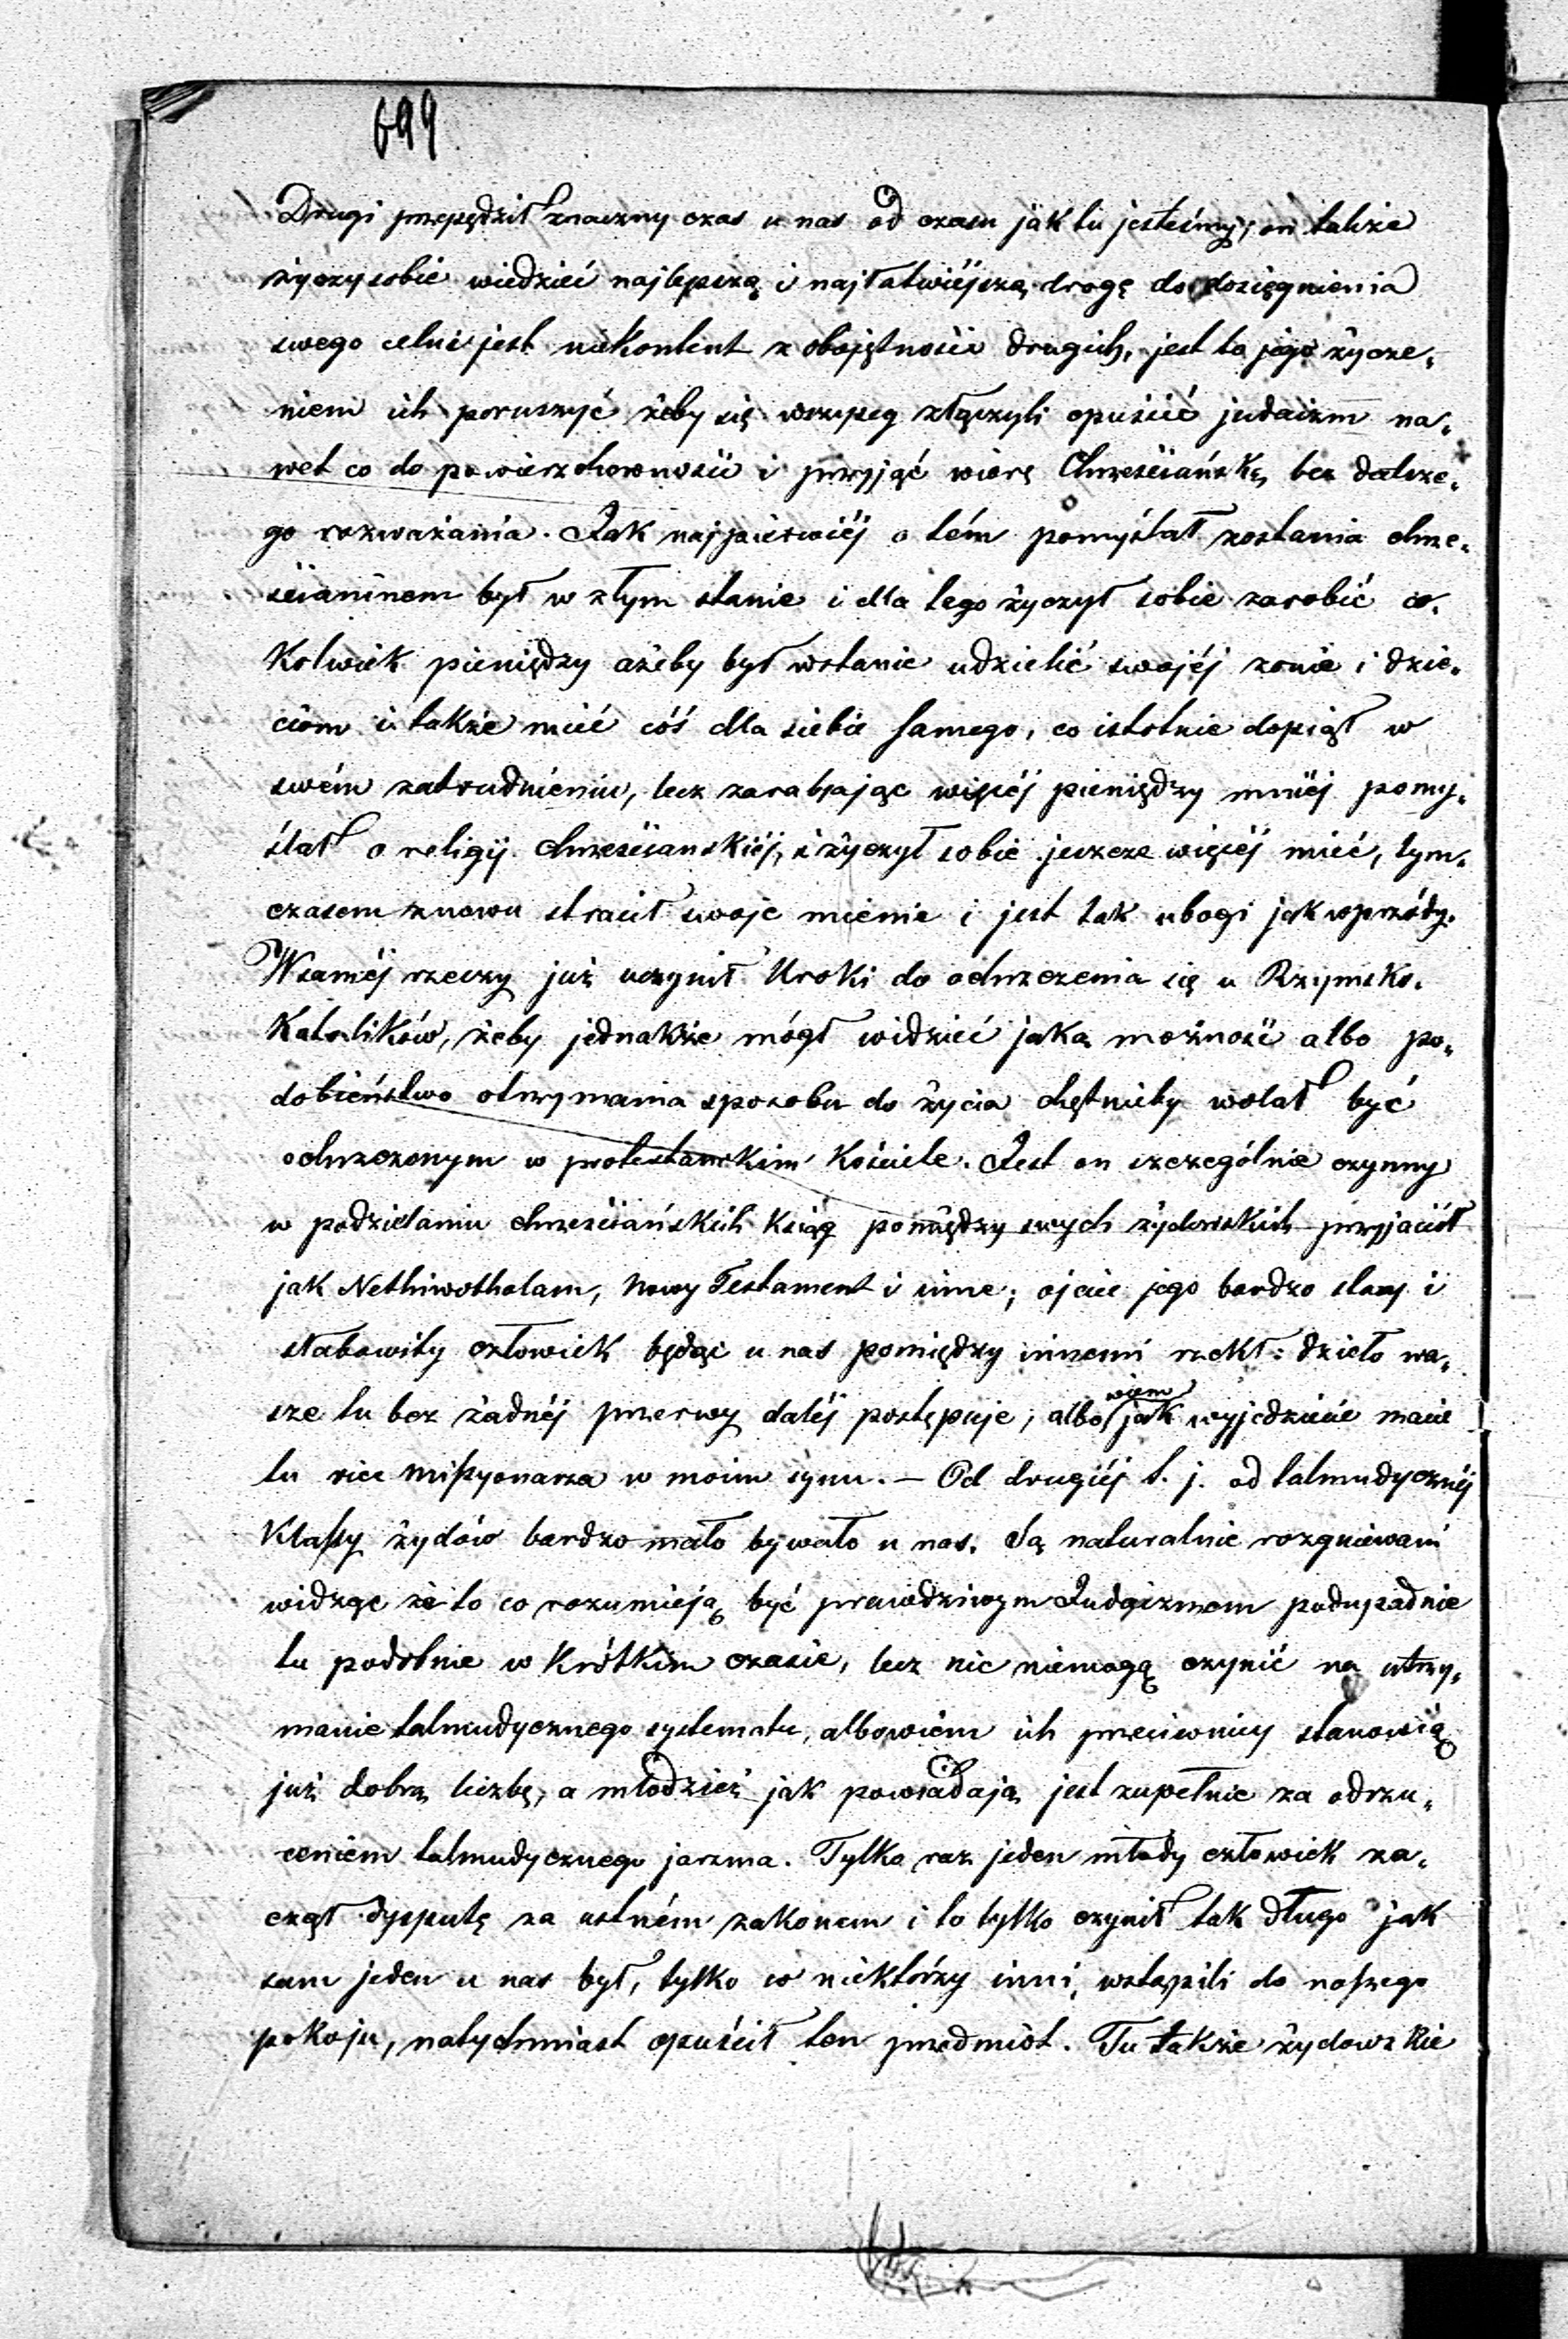 699
Drugi przepędził znaczny czas u nas od czasu jak tu jesteśmy; on także
życzy sobie wiedzieć najlepszą i najłatwiéjszą drogę do dosięgnienia
swego celu i jest niekontent z obojętności drugich, jest to jego życze„
niem ich poruszyć żeby się wszyscy złączyli opuścić judaizm na„
wet co do powierzchowności i przyjąć wiarę Chrześciańską bez dalsze„
go rozważania. Jak najpierwiéj o tém pomyślał zostania chrze„
ścianinem był w złym stanie i dla tego życzył sobie zarobić co„
kolwiek pieniędzy ażeby był wstanie udzielić swojéj żonie i dzie„
ciom i także mieć cóś dla siebie samego, co istotnie dopiął w
swém zatrudnieniu, lecz zarabiając więcéj pieniędzy mniéj pomy„
ślał o religij chrześcianskiéj, i życzył sobie jeszcze więcéj mieć, tym„
czasem znowu stracił swoje mienie i jest tak ubogi jak wprzódy.
Wsaméj rzeczy już uczynił kroki do ochrzczenia się u Rzymsko„
Katolików, żeby jednakże mógł widzieć jaką możność albo po„
dobieństwo otrzymania sposobu do życia chętnieby wolał być
ochrzczonym w protestanskim Kościele. Jest on szczególnie czynny
w podzielaniu chrześciańskich ksiąg pomiędzy swych żydowskich przyjaciół
jak Nethiwotholam, Nowy Testament i inne; ojciec jego bardzo stary i
słabowity człowiek będąc u nas pomiędzy innemi rzekł: dzieło wa„
sze tu bez żadnéj przerwy daléj postępuje; albowiem jak wyjedziecie macie
tu vice missyonarza w moim synu. — Od drugiéj t. j. od talmudycznéj
Klassy żydów bardzo mało bywało u nas. Są naturalnie rozgniewani
widząc że to co rozumieją być prawdziwym Judaizmem podupadnie
tu podobnie w krótkim czasie, lecz nic niemogą czynić na utrzy„
manie talmudycznego systematu, albowiem ich przeciwnicy stanowią
już dobrą liczbę, a młodzież jak powiadają jest zupełnie za odrzu„
ceniem talmudycznego jarzma. Tylko raz jeden młody człowiek za„
czął dysputę za ustném zakonem i to tylko czynił tak długo jak
sam jeden u nas był, tylko co niektórzy inni wstąpili do naszego
pokoju, natychmiast opuścił ten przedmiot. Tu także żydowskie